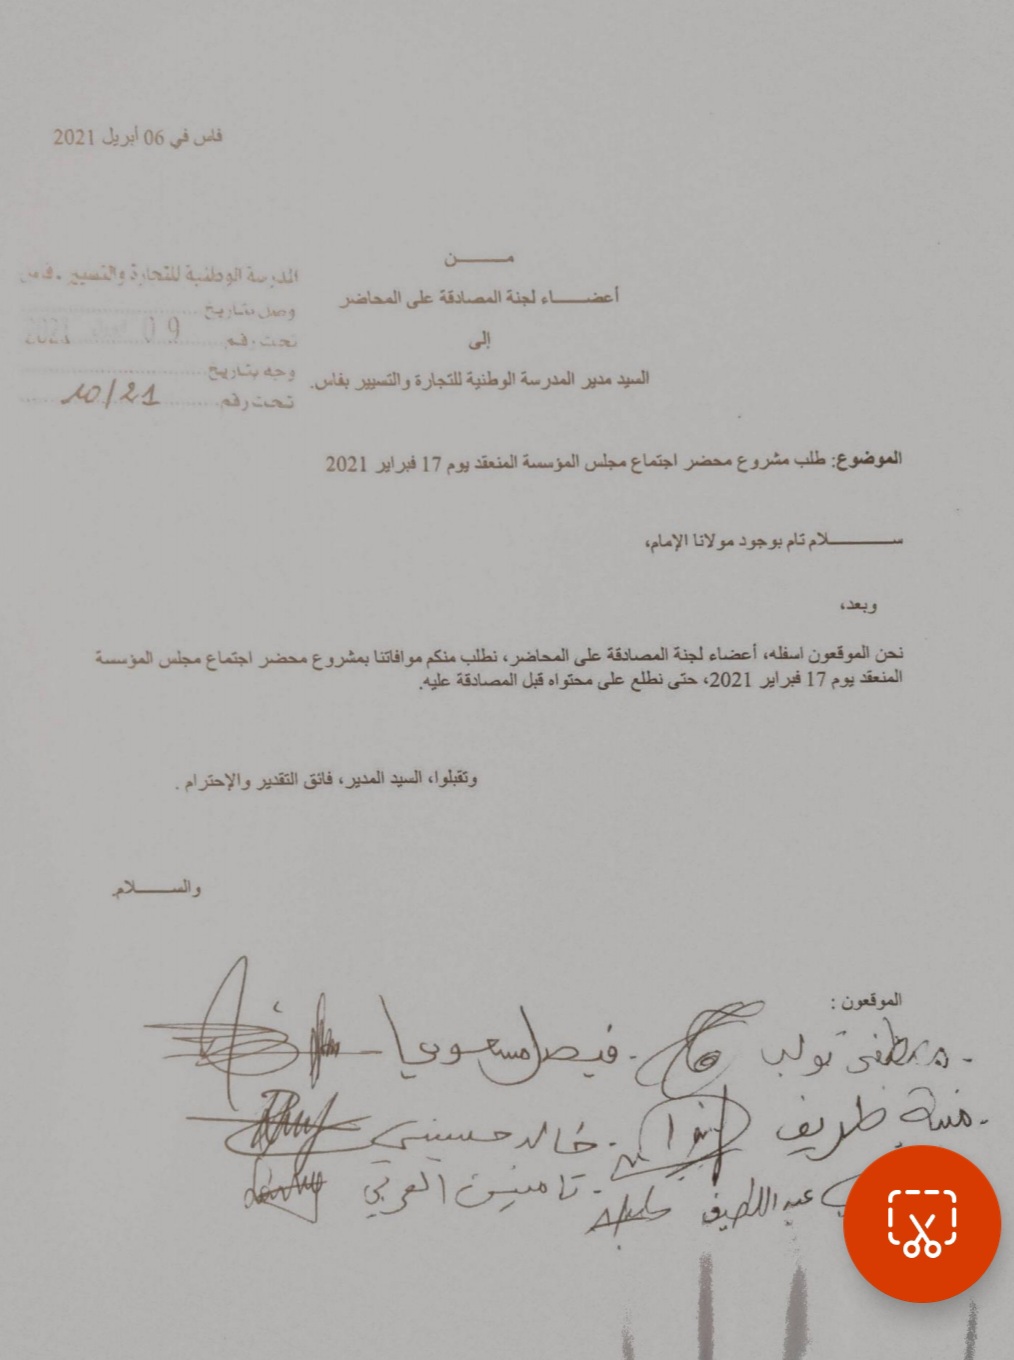 فاس في 06 أبريل 2021
المدرسة الوطنية للتجارة والتسيير - فاس
وصل بتاريخ
09 2021
تحت رقم
وجه بتاريخ
تحت رقم 10/21
مـــــن
أعضـــــاء لجنة المصادقة على المحاضر
إلى
السيد مدير المدرسة الوطنية للتجارة والتسيير بفاس.
الموضوع: طلب مشروع محضر اجتماع مجلس المؤسسة المنعقد يوم 17 فبراير 2021
ســـــــــلام تام بوجود مولانا الإمام،
وبعد،
نحن الموقعون اسفله، أعضاء لجنة المصادقة على المحاضر، نطلب منكم موافاتنا بمشروع محضر اجتماع مجلس المؤسسة
المنعقد يوم 17 فبراير 2021، حتى نطلع على محتواه قبل المصادقة عليه.
وتقبلوا، السيد المدير، فائق التقدير والإحترام .
والســـــــلام.
الموقعون :
- مصطفى - فيصل
- ظريف - خالد حسيني
عبد اللطيف -